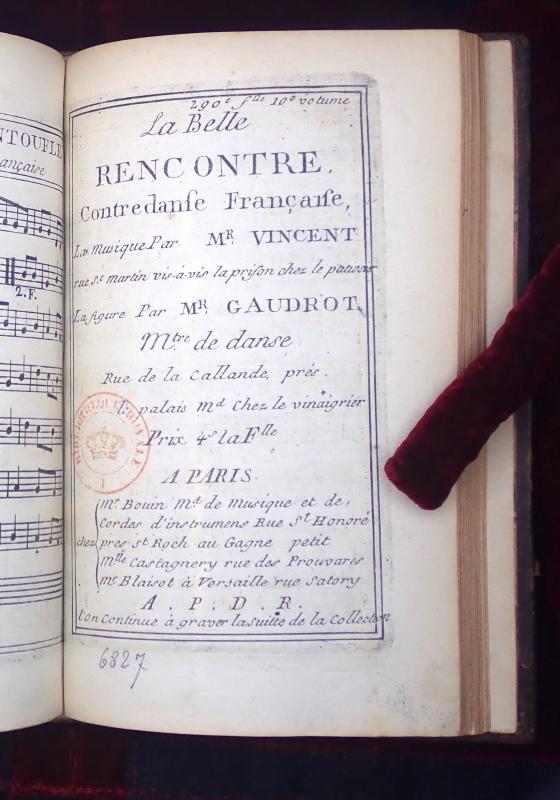 NTOUFLE
ançaise
2.F.
290.e f.lle 10.e volume
La Belle
RENCONTRE.
Contredanse Française,
La musique Par MR. VINCENT
rue St. martin vis-à-vis la prison chez le patissier
La figure Par MR. GAUDROT,
M.tre de danse
Rue de la Callande, prés.
le palais Md Chez le vinaigrier
Prix 4s la Flle
A PARIS
chez
mr Bouin Md de Musique et de,
Cordes d'instrumens Rue St Honoré
pres st Roch au Gagne petit
mlle Castagnery rue des Prouvares
mr Blaisot à Versaille rue Satory
A . P . D . R .
l'on Continue à graver la suitte de la Collection
6827